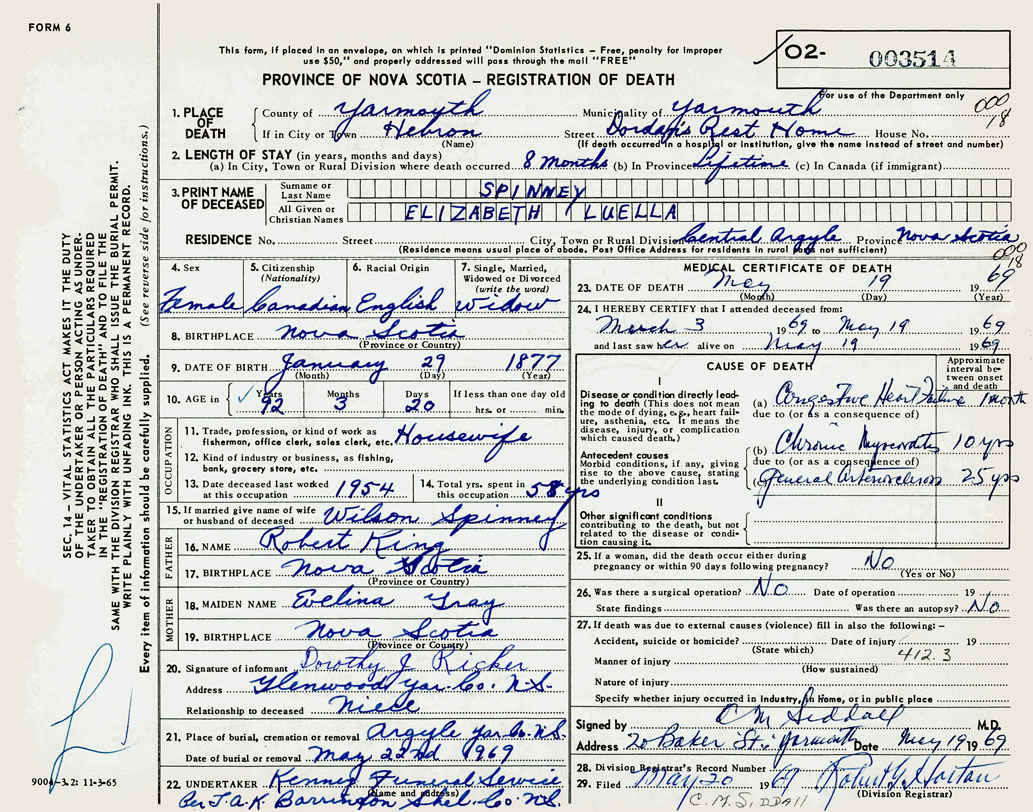 FORM 6
This form, if placed in an envelope, on which is printed "Dominion Statistics – Free, penalty for improper
use $50," and properly addressed will pass through the mail "FREE"
PROVINCE OF NOVA SCOTIA – REGISTRATION OF DEATH
O2- 003514
For use of the Department only
000
18
1. PLACE OF DEATH
County of Yarmouth Municipality of Yarmouth
If in City or Town Hebron Street Rest Home House No.
(Name) (If death occurred in a hospital or institution, give the name instead of street and number)
2. LENGTH OF STAY (in years, months and days)
(a) In City, Town or Rural Division where death occurred 8 months (b) In Province Lifetime (c) In Canada (if immigrant)
3. PRINT NAME OF DECEASED
Surname or Last Name SPINNEY
All Given or Christian Names ELIZABETH LUELLA
RESIDENCE No. Street City, Town or Rural Division Central Argyle Province Nova Scotia
(Residence means usual place of abode. Post Office Address for residents in rural not sufficient)
000
18
4. Sex 5. Citizenship (Nationality) 6. Racial Origin 7. Single, Married, Widowed or Divorced (write the word)
Female Canadian English Widow
8. BIRTHPLACE Nova Scotia
(Province or Country)
9. DATE OF BIRTH January 29 1877
(Month) (Day) (Year)
10. AGE in Years Months Days If less than one day old
92 3 20 hrs. or min.
OCCUPATION
11. Trade, profession, or kind of work as
fisherman, office clerk, sales clerk, etc. Housewife
12. Kind of industry or business, as fishing,
bank, grocery store, etc.
13. Date deceased last worked at this occupation 1954
14. Total yrs. spent in this occupation 58 yrs
15. If married give name of wife
or husband of deceased Wilson Spinney
FATHER
16. NAME Robert King
17. BIRTHPLACE Nova Scotia
(Province or Country)
MOTHER
18. MAIDEN NAME Evelina Gray
19. BIRTHPLACE Nova Scotia
(Province or Country)
20. Signature of informant Dorothy J Ricker
Address Glenwood Yar. Co. N.S.
Relationship to deceased Niece
21. Place of burial, cremation or removal Argyle Yar. Co. N.S.
Date of burial or removal May 22nd 1969
22. UNDERTAKER Kenney Funeral Service
(Name and address)
Per J.A.K. Barrington Shel. Co. N.S.
MEDICAL CERTIFICATE OF DEATH
23. DATE OF DEATH May 19 1969
(Month) (Day) (Year)
24. I HEREBY CERTIFY that I attended deceased from:
March 3 1969 to May 19 1969
and last saw her alive on May 19 1969
CAUSE OF DEATH
Approximate interval between onset and death
I
Disease or condition directly leading to death (This does not mean the mode of dying, e.g., heart failure, asthenia, etc. It means the disease, injury, or complication which caused death.)
(a) Congestive Heart Failure 1 month
due to (or as a consequence of)
Antecedent causes
Morbid conditions, if any, giving rise to the above cause, stating the underlying condition last.
(b) Chronic Myocarditis 10 yrs
due to (or as a consequence of)
(c) General Arteriosclerosis 25 yrs
II
Other significant conditions
contributing to the death, but not related to the disease or condition causing it.
25. If a woman, did the death occur either during
pregnancy or within 90 days following pregnancy? No
(Yes or No)
26. Was there a surgical operation? NO Date of operation 19
State findings Was there an autopsy? No
27. If death was due to external causes (violence) fill in also the following:–
Accident, suicide or homicide? Date of injury 19
(State which) 412.3
Manner of injury
(How sustained)
Nature of injury
Specify whether injury occurred in Industry, in Home, or in public place
Signed by C M Siddall M.D.
Address 20 Baker St. Yarmouth Date May 19 1969
28. Division Registrar's Record Number
29. Filed May 20 1969
(Division Registrar)
C.M.SIDDAll
SEC. 14 – VITAL STATISTICS ACT MAKES IT THE DUTY
OF THE UNDERTAKER OR PERSON ACTING AS UNDER-
TAKER TO OBTAIN ALL THE PARTICULARS REQUIRED
IN THE "REGISTRATION OF DEATH" AND TO FILE THE
SAME WITH THE DIVISION REGISTRAR WHO SHALL ISSUE THE BURIAL PERMIT.
WRITE PLAINLY WITH UNFADING INK. THIS IS A PERMANENT RECORD.
Every item of information should be carefully supplied. (See reverse side for instructions.)
9004-3.2: 11-3-65